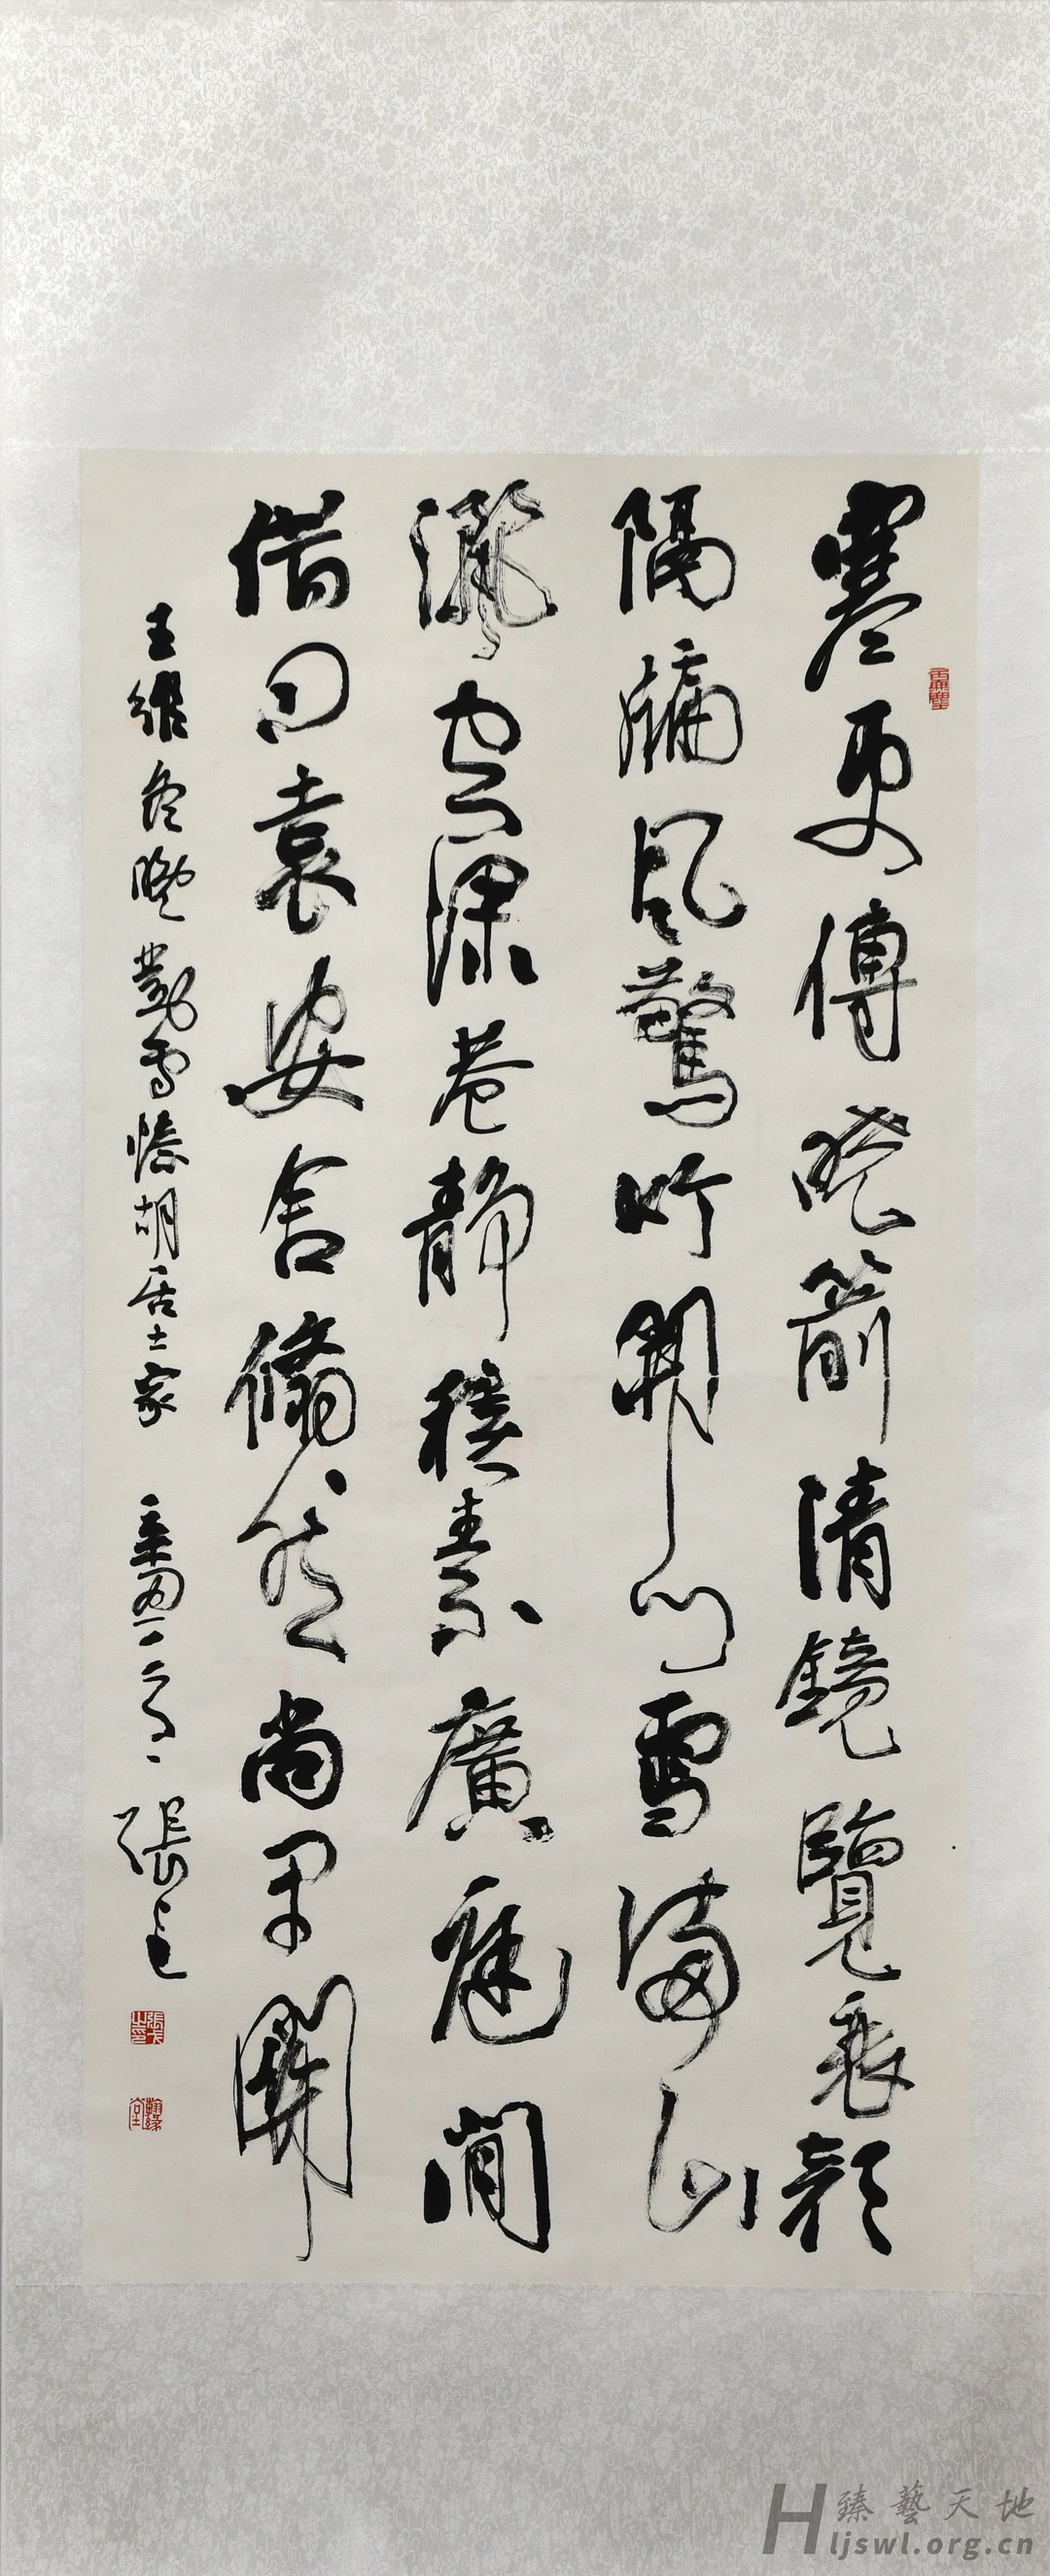 寒更傳曉箭清鏡覽衰顏
隔牖風驚竹開門雪滿山
灑空深巷靜積素廣庭閒
借問袁安舍翛然尚閉關
王維冬晚對雪憶胡居士家 張
H臻藝天地
ljswl.org.cn